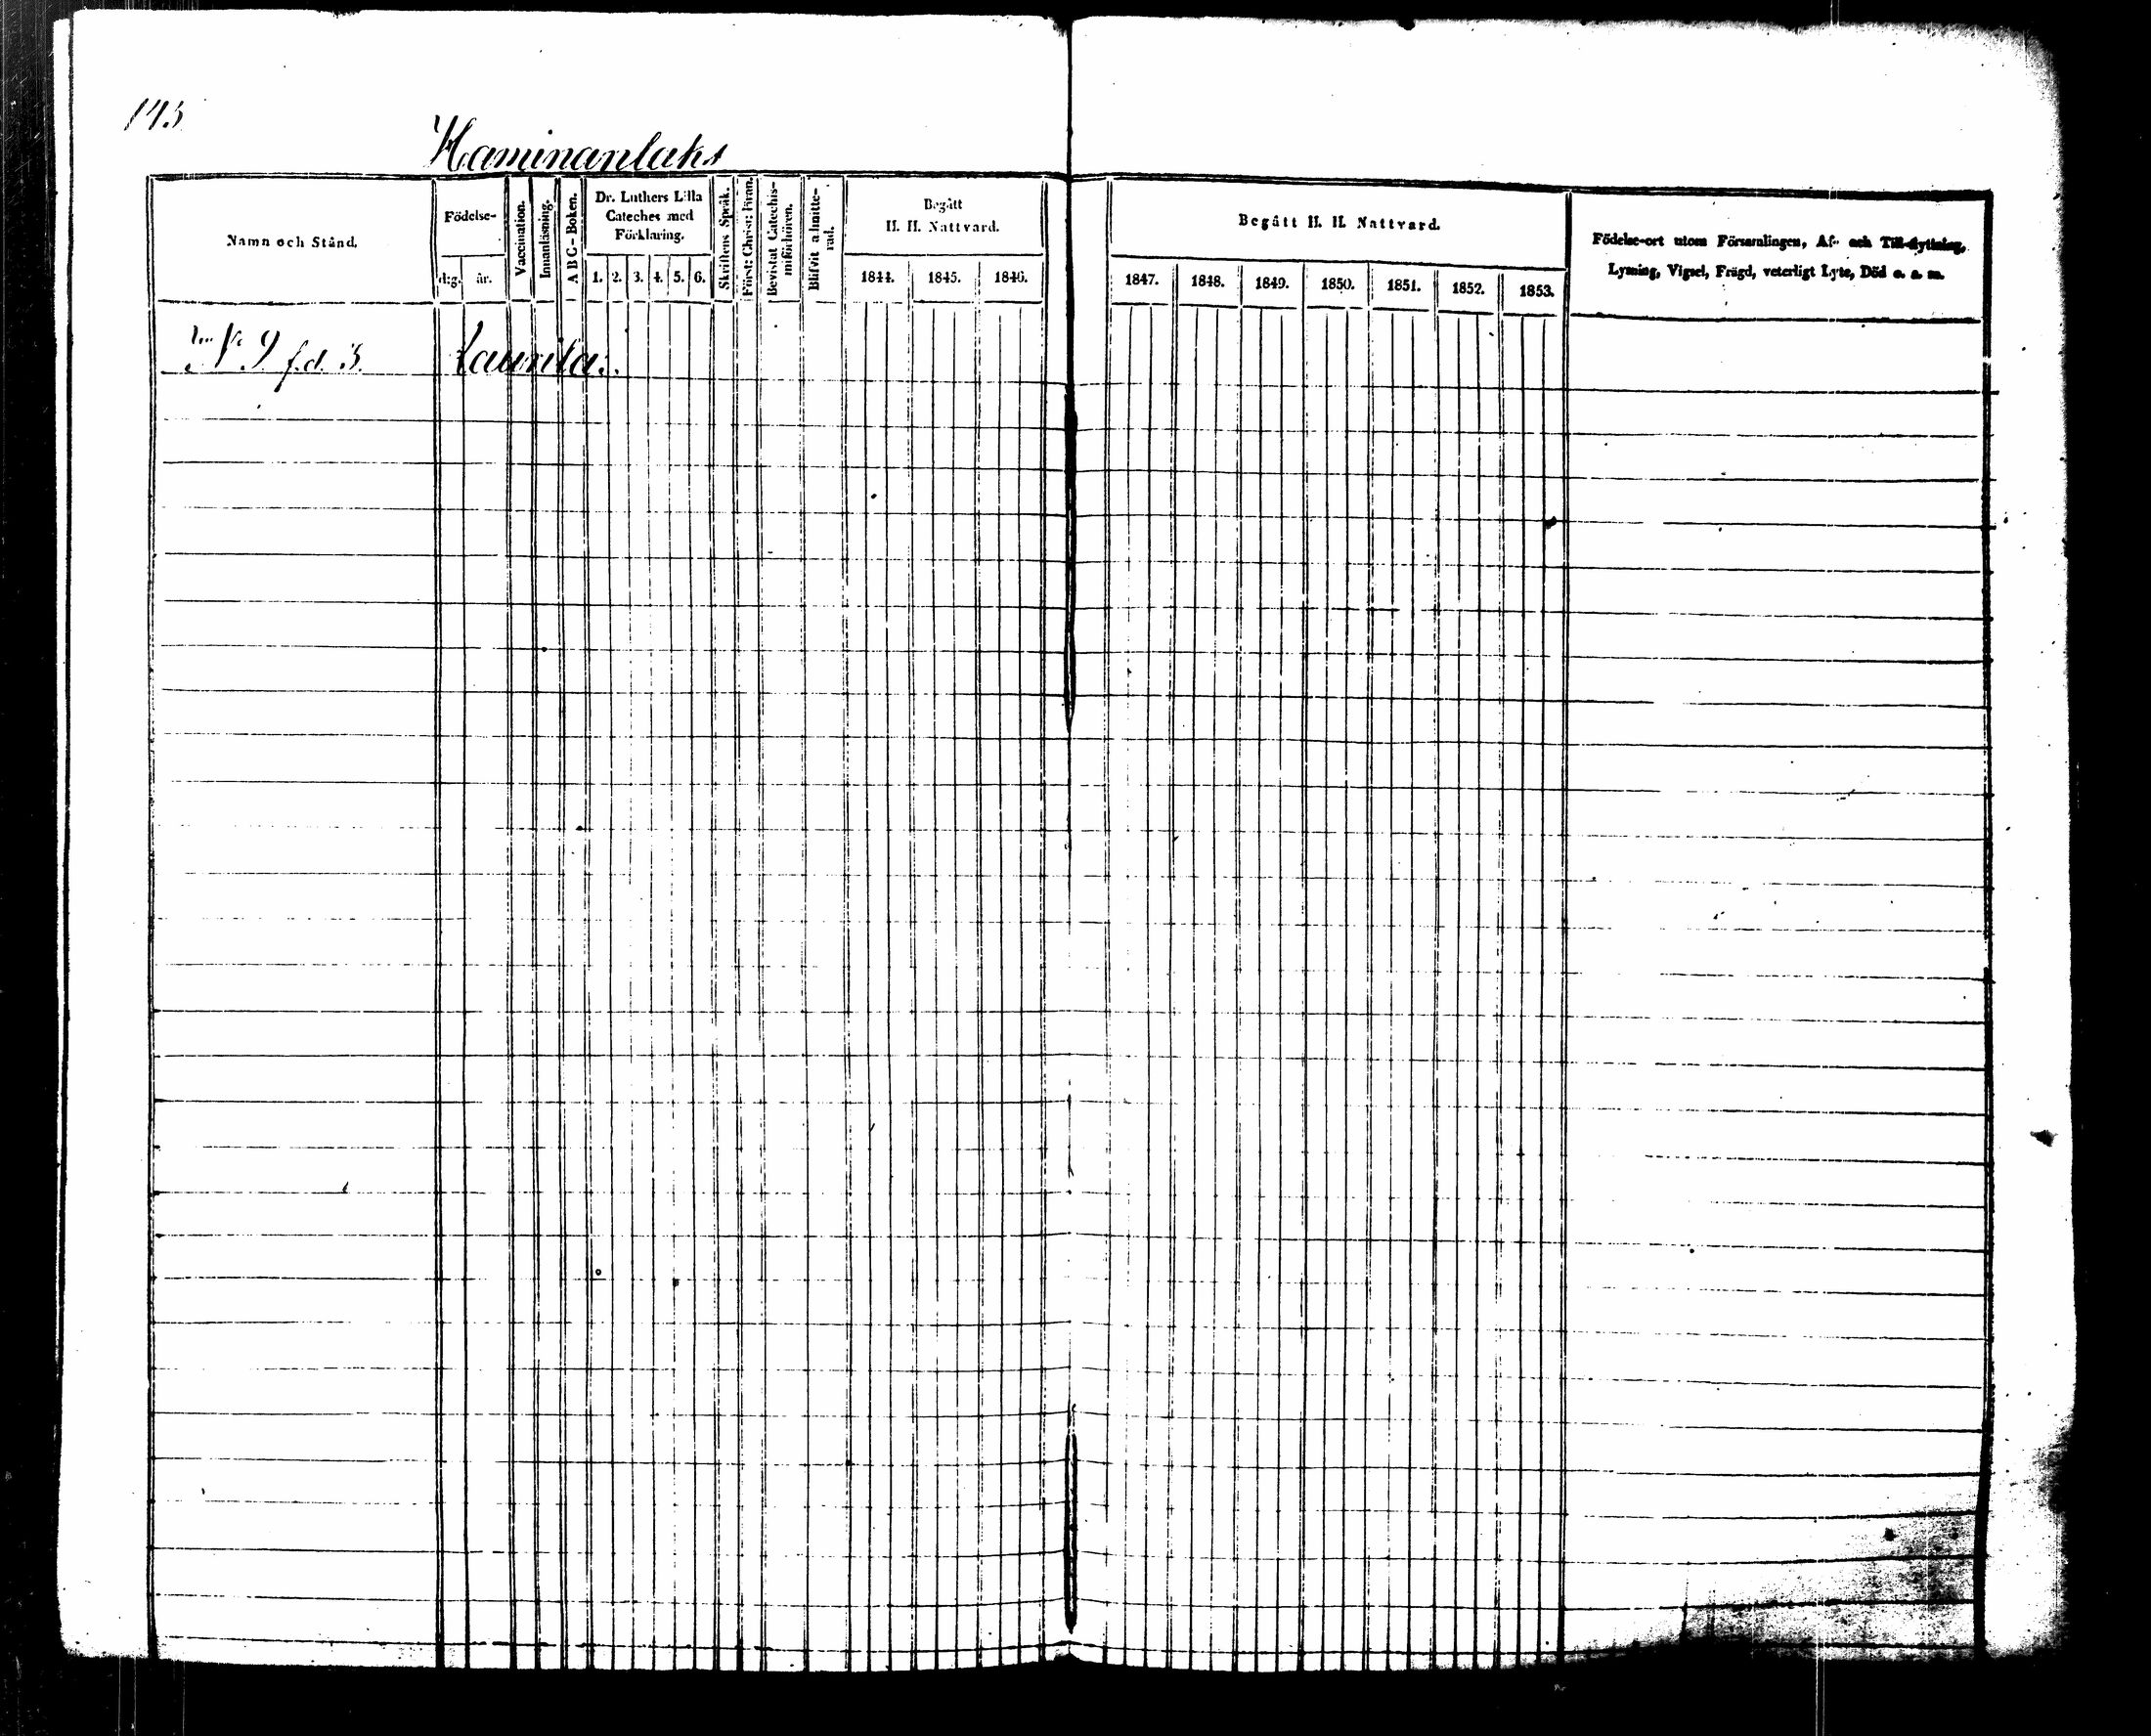 143
Haminanlaks
Namn och Stånd.
Födelse-
d:g. år.
Vaccination.
Innanläsning.
A B C - Boken.
Dr. Luthers Lilla
Cateches med
Förklaring.
1. 2. 3. 4. 5. 6.
Skriftens Språk.
Först: Christ: läran.
Bevistat Catechis-
misförhören.
Blifvit admitte-
rad.
Begått
H. H. Nattvard.
1844. 1845. 1846.
Begått H. H. Nattvard.
1847. 1848. 1849. 1850. 1851. 1852. 1853.
Födelse-ort utom Församlingen, Af- och Till-flyttning,
Lysning, Vigsel, Frägd, veterligt Lyte, Död o. s. m.
No 9 f.d. 3. Launila.